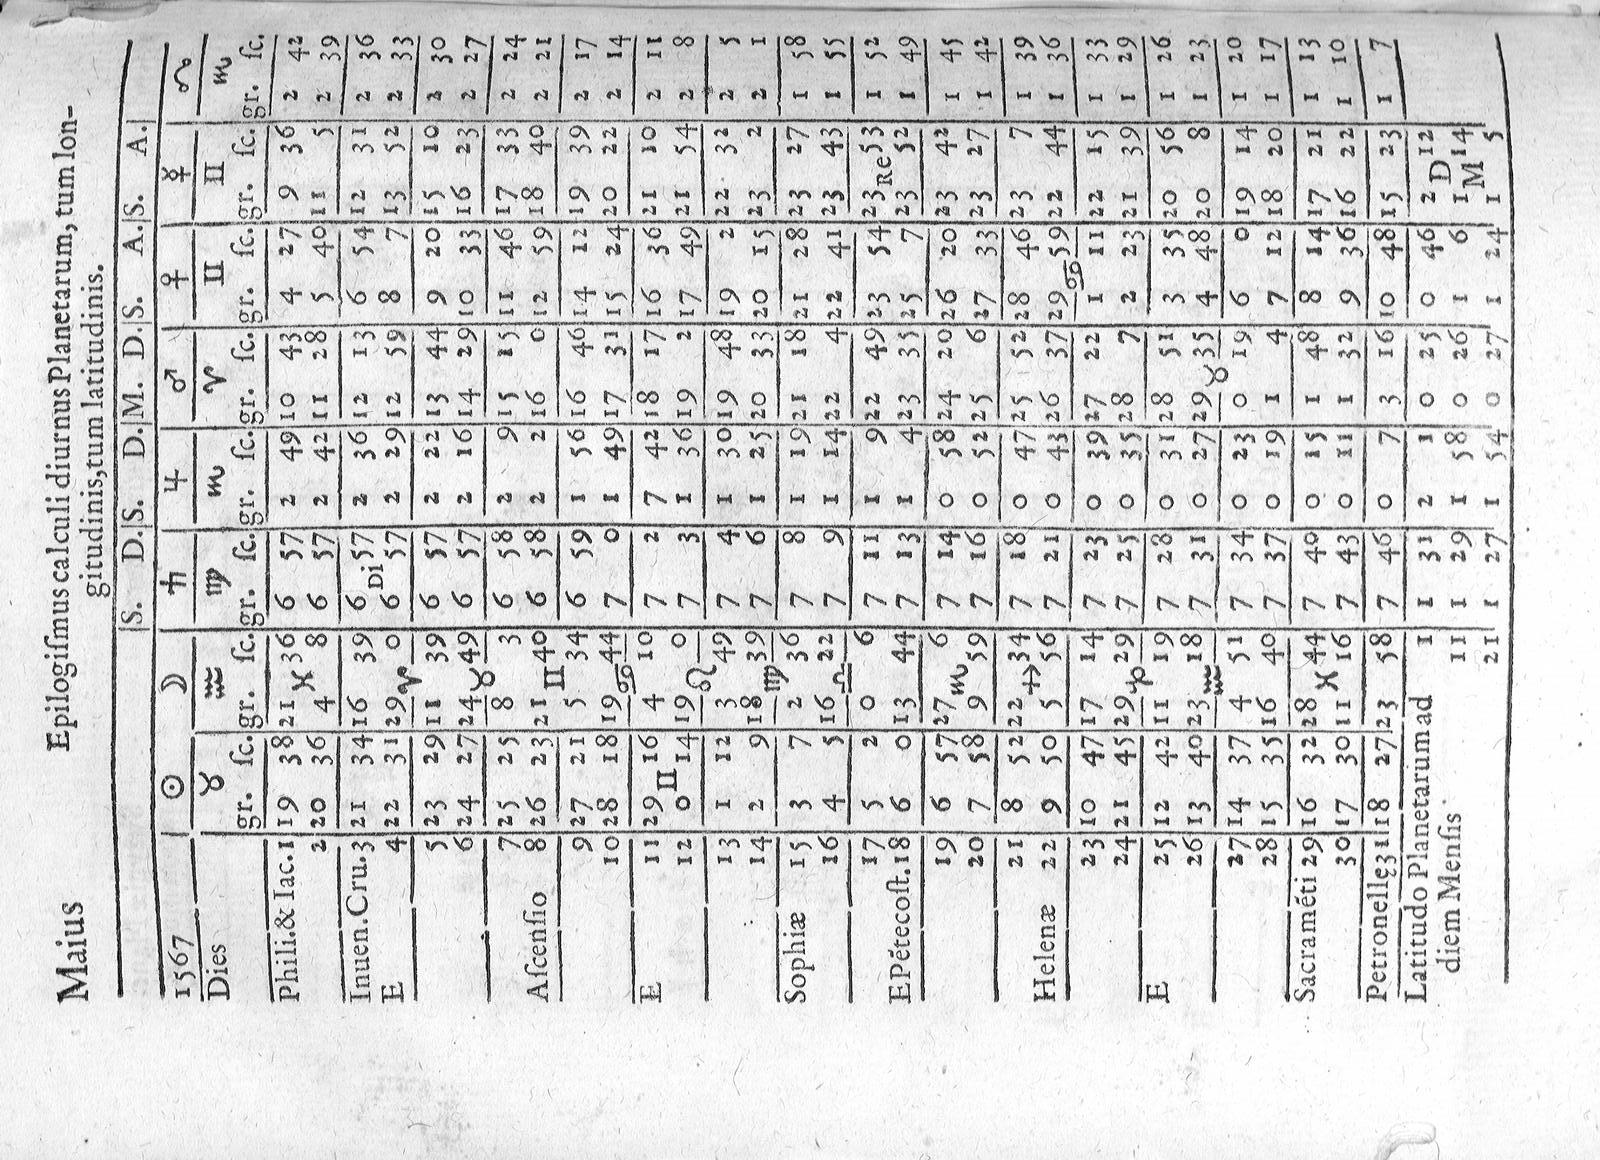 Maius Epilogiſmus calculi diurnus Planetarum, tum lon-
gitudinis, tum latitudinis.
S. D. S. D. M. D. S. A. S. A.
1567 ☉ ☽ ♄ ♃ ♂ ♀ ☿ ☊
Dies ♉ ♒ ♍ ♏ ♈ ♊ ♊ ♏
gr. ſc. gr. ſc. gr. ſc. gr. ſc. gr. ſc. gr. ſc. gr. ſc. gr. ſc.
Phili.& Iac. 1 19 38 21 36 6 57 2 49 10 43 4 27 9 36 2 42
2 20 36 ♓ 4 8 6 57 2 42 11 28 5 40 11 5 2 39
Inuen.Cru. 3 21 34 16 39 6 57 2 36 12 13 6 54 12 31 2 36
E 4 22 31 29 0 6 Di 57 2 29 12 59 8 7 13 52 2 33
5 23 29 ♈ 11 39 6 57 2 22 13 44 9 20 15 10 2 30
6 24 27 24 49 6 57 2 16 14 29 10 33 16 23 2 27
7 25 25 ♉ 8 3 6 58 2 9 15 15 11 46 17 33 2 24
Aſcenſio 8 26 23 21 40 6 58 2 2 16 0 12 59 18 40 2 21
9 27 21 ♊ 5 34 6 59 1 56 16 46 14 12 19 39 2 17
10 28 18 19 44 7 0 1 49 17 31 15 24 20 22 2 14
E 11 29 16 ♋ 4 10 7 2 7 42 18 17 16 36 21 10 2 11
12 ♊ 0 14 19 0 7 3 1 36 19 2 17 49 21 54 2 8
13 1 12 ♌ 3 49 7 4 1 30 19 48 19 2 22 32 2 5
14 2 9 18 39 7 6 1 25 20 33 20 15 23 2 2 1
Sophiæ 15 3 7 ♍ 2 36 7 8 1 19 21 18 21 28 23 27 1 58
16 4 5 16 22 7 9 1 14 22 4 22 41 23 43 1 55
17 5 2 ♎ 0 6 7 11 1 9 22 49 23 54 23 Re 53 1 52
E Pétecoſt. 18 6 0 13 44 7 13 1 4 23 35 25 7 23 52 1 49
19 6 57 27 6 7 14 0 58 24 20 26 20 23 42 1 45
20 7 58 ♏ 9 59 7 16 0 52 25 6 27 33 23 27 1 42
21 8 52 22 34 7 18 0 47 25 52 28 46 23 7 1 39
Helenæ 22 9 50 ♐ 5 56 7 21 0 43 26 37 29 59 22 44 1 36
23 10 47 17 14 7 23 0 39 27 22 ♋ 1 11 22 15 1 33
24 21 45 29 29 7 25 0 35 28 7 2 23 21 39 1 29
E 25 12 42 ♑ 11 19 7 28 0 31 28 51 3 35 20 56 1 26
26 13 40 23 18 7 31 0 27 29 35 4 48 20 8 1 23
27 14 37 ♒ 4 51 7 34 0 23 ♉ 0 19 6 0 19 14 1 20
28 15 35 16 40 7 37 0 19 1 4 7 12 18 20 1 17
Sacraméti 29 16 32 28 44 7 40 0 15 1 48 8 14 17 21 1 13
30 17 30 ♓ 11 16 7 43 0 11 1 32 9 36 16 22 1 10
Petronellę 31 18 27 23 58 7 46 0 7 3 16 10 48 15 23 1 7
Latitudo Planetarum ad 1 1 31 2 1 0 25 0 46 2 D 12
diem Menſis 11 1 29 1 58 0 26 1 6 1 M 14
21 1 27 1 54 0 27 1 24 1 5